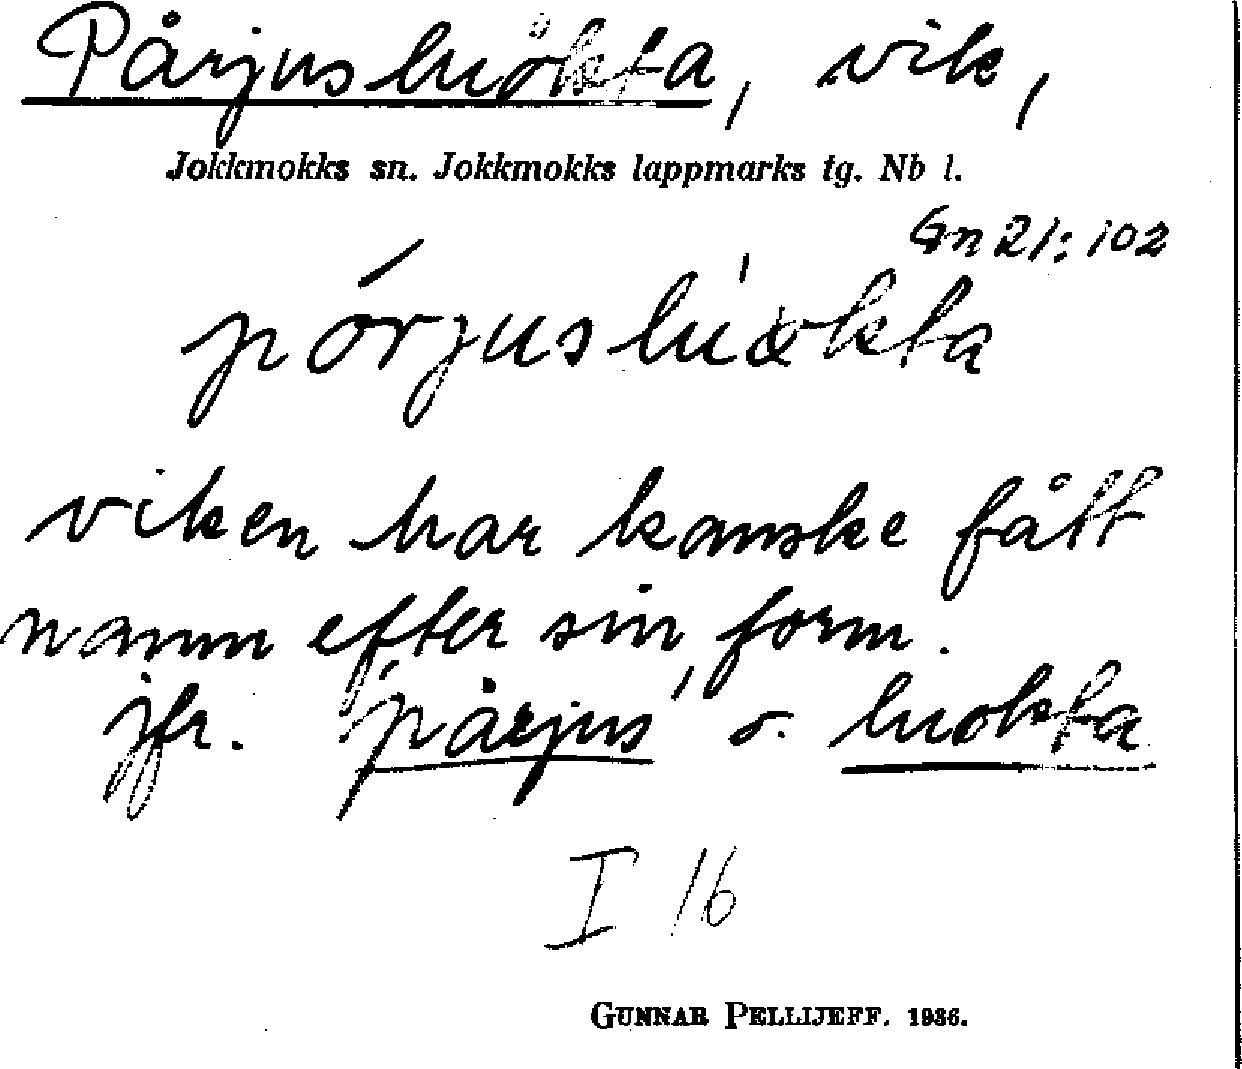 Pårjusluokta, vik,
Jokkmokks sn. Jokkmokks lappmarks tg. Nb l.
Gn 21: 102
pórjuslúokta
viken har kanske fått
namn efter sin form.
jfr. pårjus o. luokta
I 16
GUNNAR PELLIJEFF. 1936.